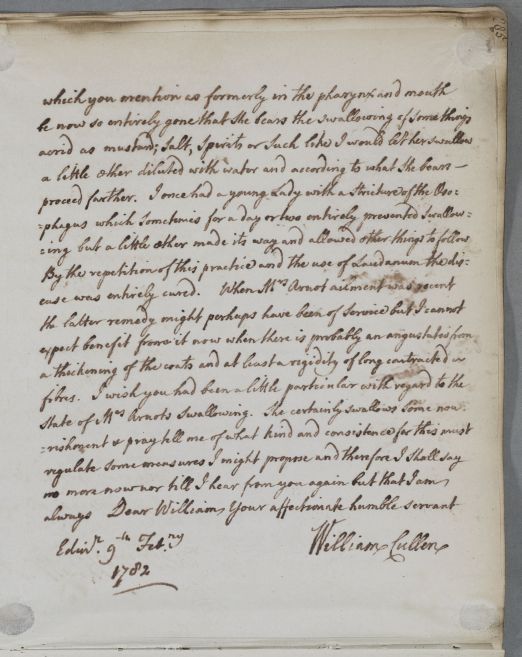 which you mention as formerly in the pharynx and mouth
be now so entirely gone that she bears the swallowing of some things
acrid as mustard, Salt, Spirits or such like I would let her swallow
a little æther diluted with water and according to what she bears
proceed farther. I once had a young Lady with a stricture of the Oso-
=phagus which sometimes for a day or two entirely prevented swallow=
=ing but a little æther made its way and allowed other things to follow
By the repetition of this practice and the use of Laudanum the dis-
ease was entirely cured. When Mrs Arnot ailment was recent
the latter remedy might perhaps have been of service but I cannot
expect benefit from it now when there is probably an angustated from
a thickening of the coats and at least a rigidity of long contracted
fibres. I wish you had been a little particular with regard to the
State of Mrs Arnots Swallowing. She certainly swallows some nou
=rishment & pray tell me of what kind and consistence for this must
regulate some measures I might propose and therefore I shall say
no more now nor till I hear from you again but that I am
always Dear William Your affectionate humble servant
Edinr. 9th Febry William Cullen
1782